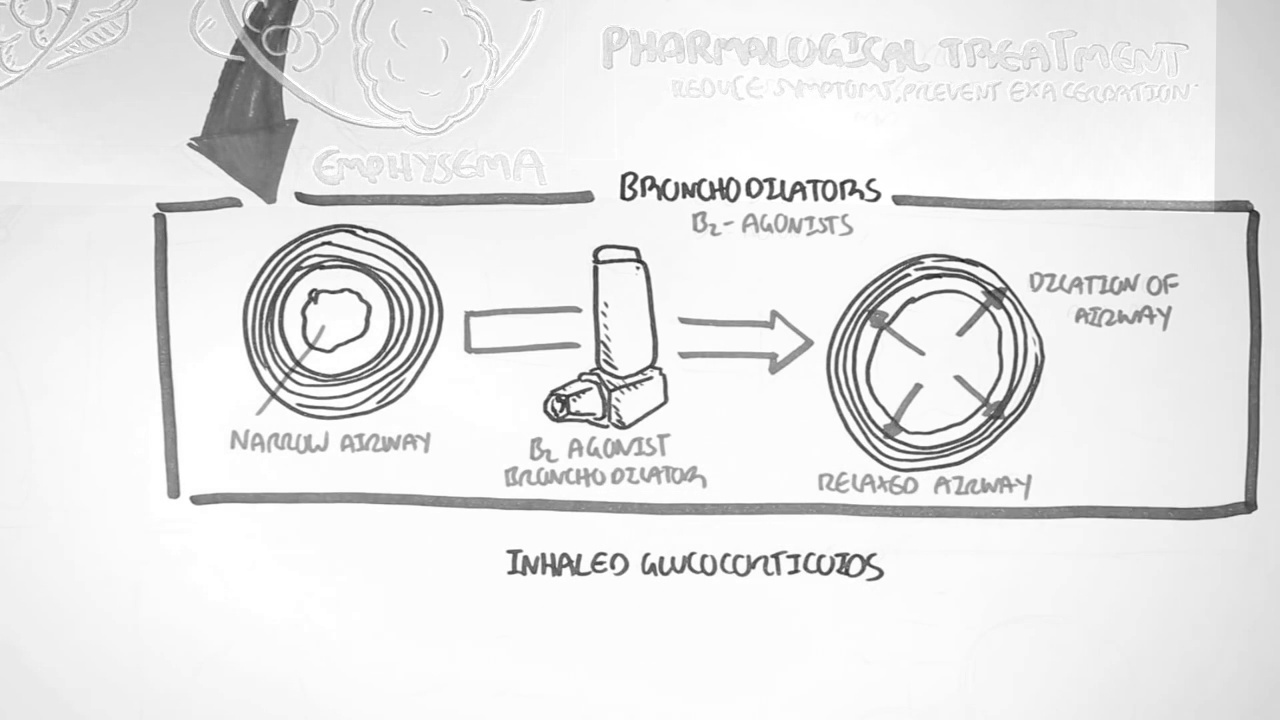 PHARMALOGICAL TREATMENT
REDUCE SYMPTOMS, PREVENT EXACERBATION
EMPHYSEMA
BRONCHODILATORS
B2 - AGONISTS
DILATION OF
AIRWAY
NARROW AIRWAY
B2 AGONIST
BRONCHODILATOR
RELAXED AIRWAY
INHALED GLUCOCORTICOIDS